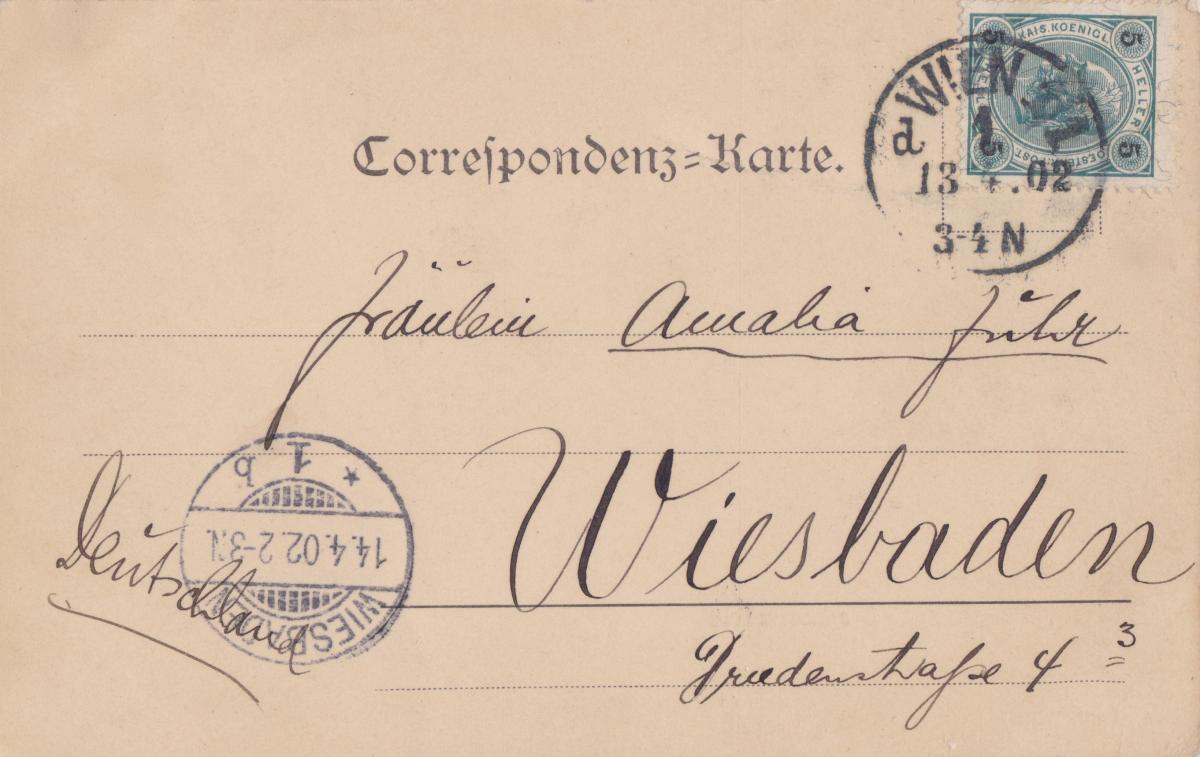 KAIS. KOENIGL.
5 5
HELLER HELLER
5 5
OESTERR. POST
WIEN 1/1
d 1
13 4.02
3-4 N
Correſpondenz=Karte.
Fräulein Amalia Führ
Wiesbaden
Deutschland
1 b
14.4.02.2-3.N.
WIESBADEN
4 3